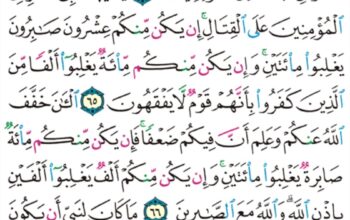 ٱلۡمُؤۡمِنِينَ عَلَى ٱلۡقِتَالِۚ إِن يَكُن مِّنكُمۡ عِشۡرُونَ صَٰبِرُونَ
يَغۡلِبُواْ مِاْئَتَيۡنِۚ وَإِن يَكُن مِّنكُم مِّاْئَةٞ يَغۡلِبُوٓاْ أَلۡفٗا مِّنَ
ٱلَّذِينَ كَفَرُواْ بِأَنَّهُمۡ قَوۡمٞ لَّا يَفۡقَهُونَ ٦٥ ٱلۡـَٰٔنَ خَفَّفَ
ٱللَّهُ عَنكُمۡ وَعَلِمَ أَنَّ فِيكُمۡ ضَعۡفٗاۚ فَإِن يَكُن مِّنكُم مِّاْئَةٞ
صَابِرَةٞ يَغۡلِبُواْ مِاْئَتَيۡنِۚ وَإِن يَكُن مِّنكُمۡ أَلۡفٞ يَغۡلِبُوٓاْ أَلۡفَيۡنِ
بِإِذۡنِ ٱللَّهِۗ وَٱللَّهُ مَعَ ٱلصَّٰبِرِينَ ٦٦ مَا كَانَ لِنَبِيٍّ أَن يَكُونَ